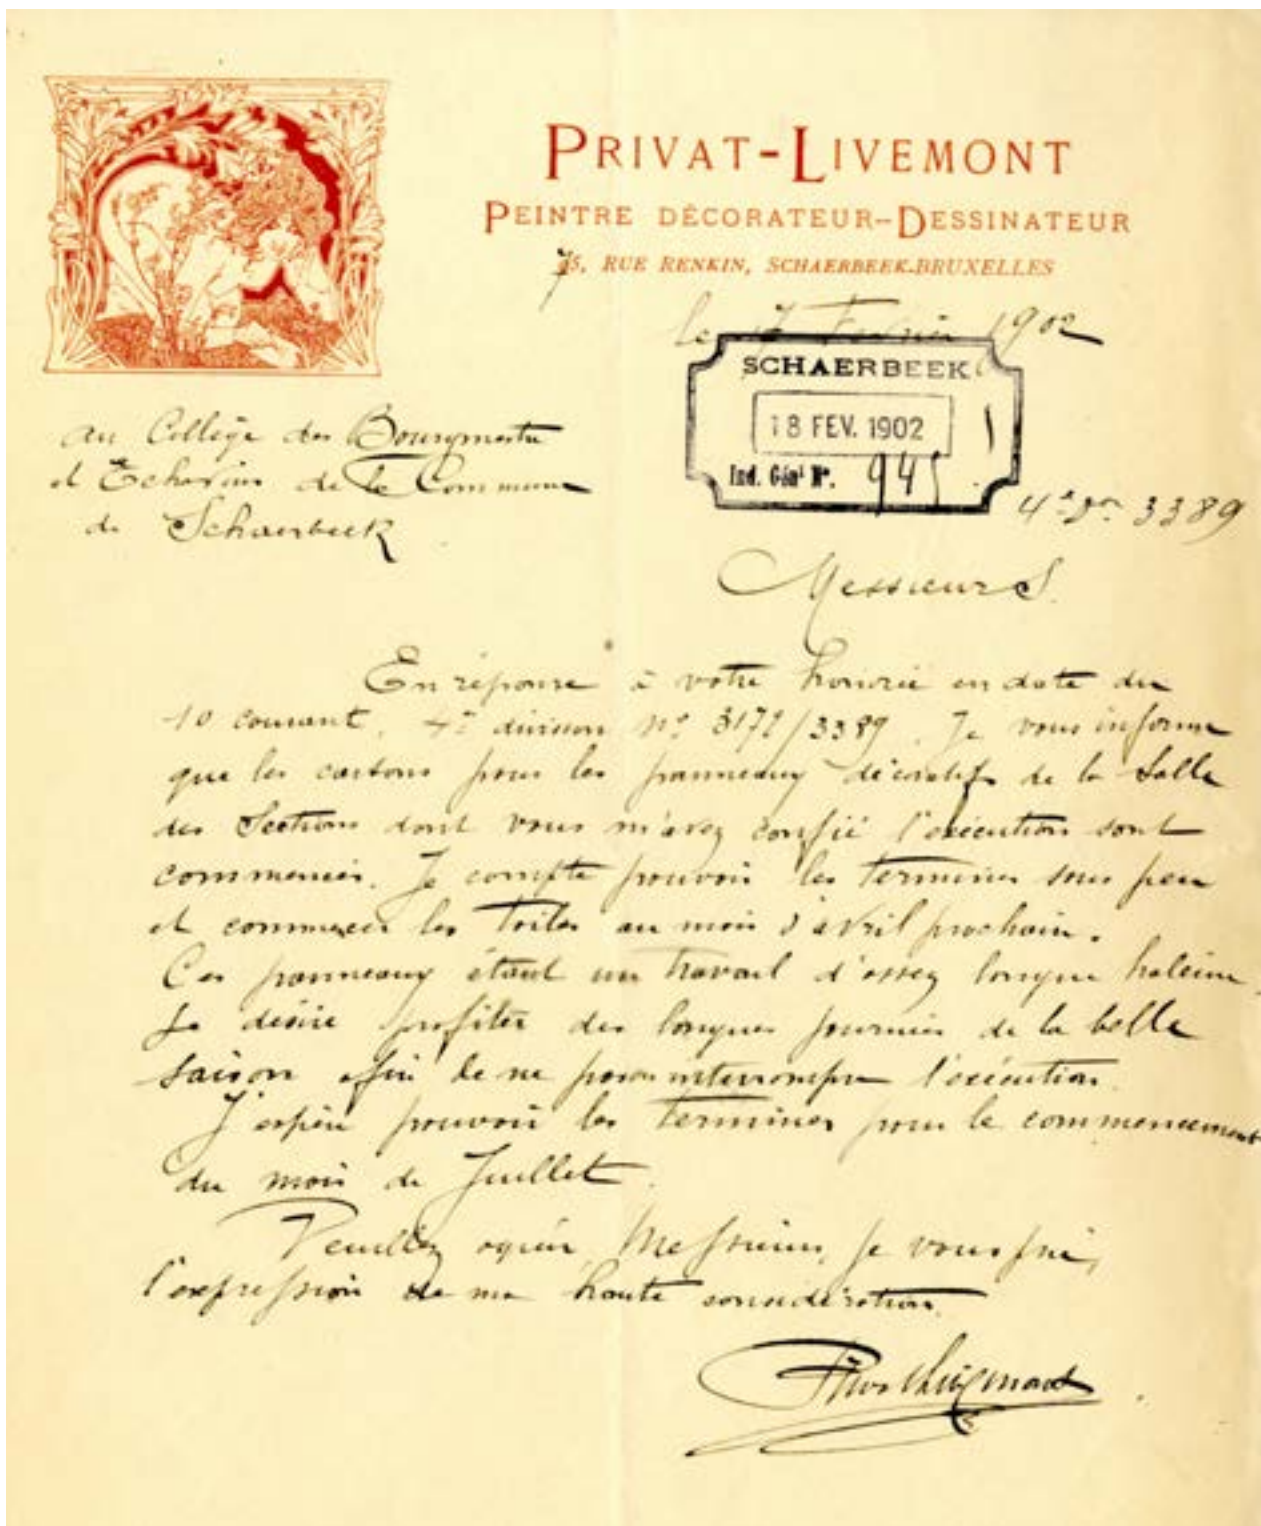 PRIVAT-LIVEMONT
PEINTRE DÉCORATEUR-DESSINATEUR
75, RUE RENKIN, SCHAERBEEK-BRUXELLES
le 17 Février 1902
SCHAERBEEK
18 FEV. 1902
Ind. Gén¹ Nº. 945
4e Don 3389
au Collège des Bourgmestre
et Echevins de la Commune
de Schaerbeek
Messieurs
En réponse à votre honorée en date du
10 courant, 4e division Nº 3172/3389. Je vous informe
que les cartons pour les panneaux décoratifs de la Salle
des Sections dont vous m'avez confié l'exécution sont
commencés. Je compte pouvoir les terminer sous peu
et commencer les toiles au mois d'avril prochain.
Ces panneaux étant un travail d'assez longue haleine,
je désire profiter des longues journées de la belle
saison afin de ne pas en interrompre l'exécution.
J'espère pouvoir les terminer pour le commencement
du mois de Juillet.
Veuillez agréer, Messieurs, je vous prie,
l'expression de ma haute considération.
Privat Livemont